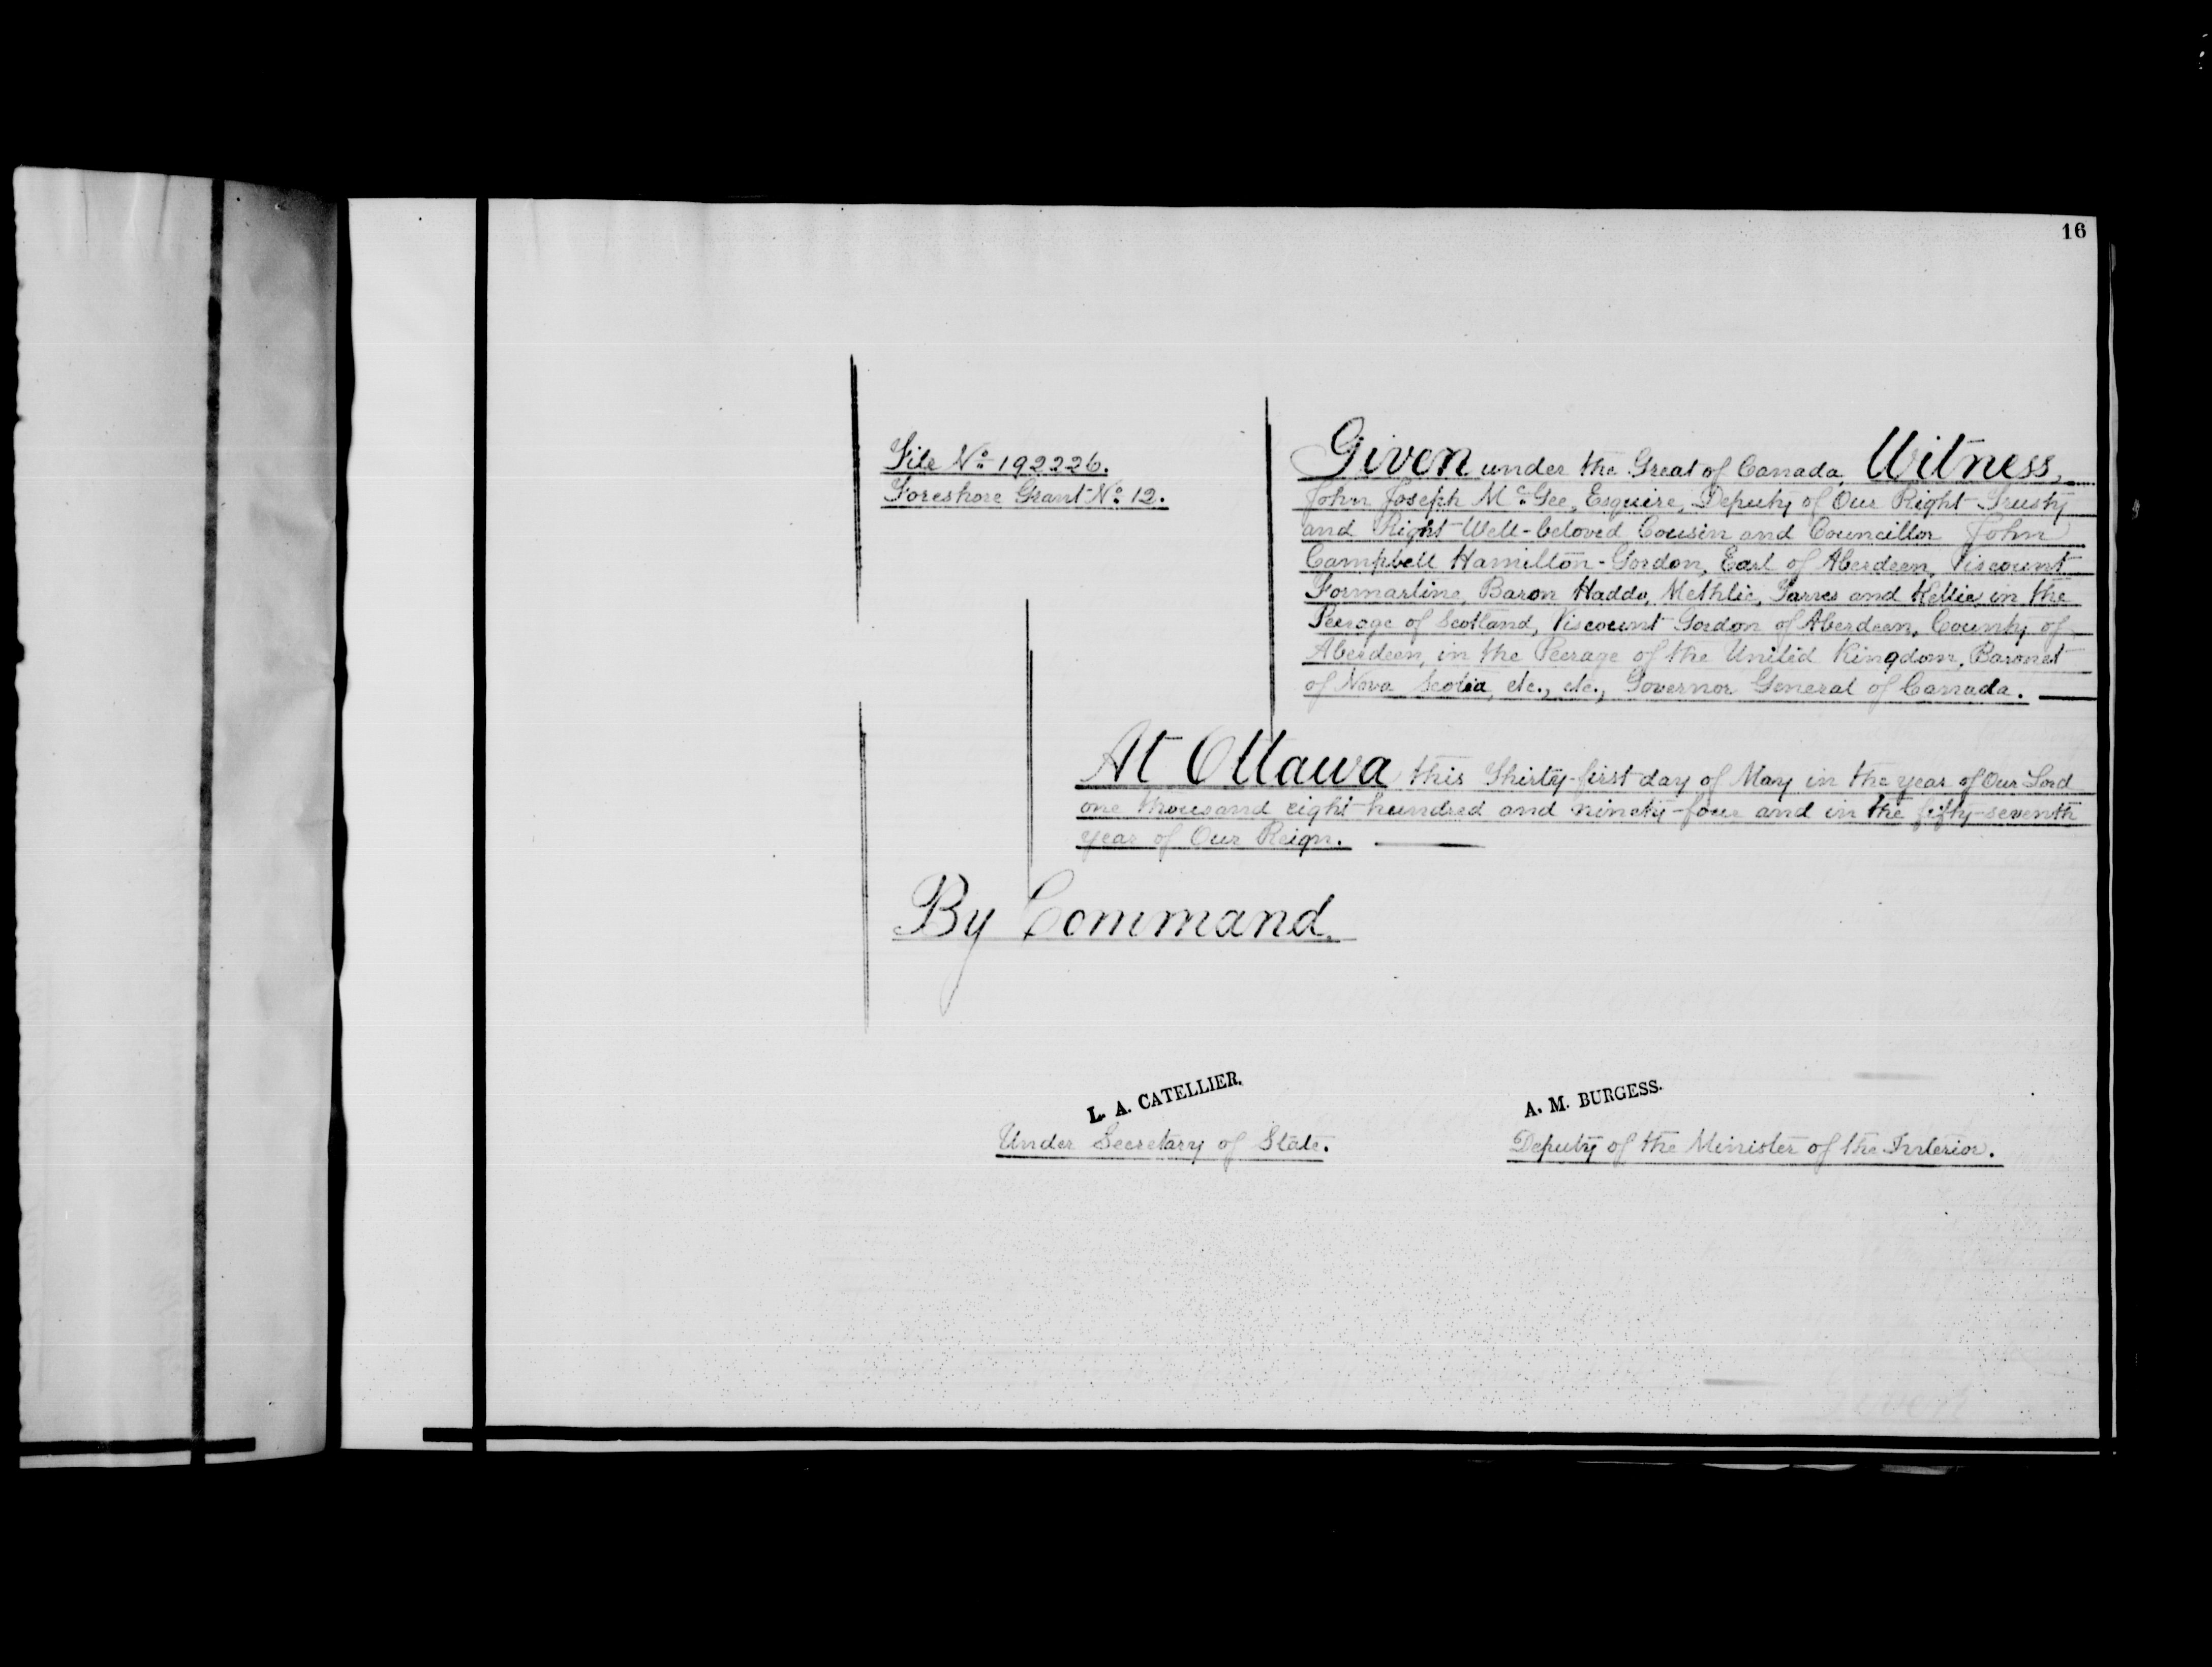 16
File No 192226.
Foreshore Grant No 12.
Given under the Great of Canada, Witness,
John Joseph McGee, Esquire, Deputy of Our Right Trusty
and Right Well-beloved Cousin and Councillor John
Campbell Hamilton-Gordon, Earl of Aberdeen, Viscount
Formartine, Baron Haddo, Methlic, Tarves and Kellie in the
Peerage of Scotland, Viscount Gordon of Aberdeen, County of
Aberdeen, in the Peerage of the United Kingdom, Baronet
of Nova Scotia, etc., etc., Governor General of Canada.
At Ottawa this Thirty-first day of May in the year of Our Lord
one thousand eight hundred and ninety-four and in the fifty-seventh
year of Our Reign.
By Command.
L. A. CATELLIER.
Under Secretary of State.
A. M. BURGESS.
Deputy of the Minister of the Interior.